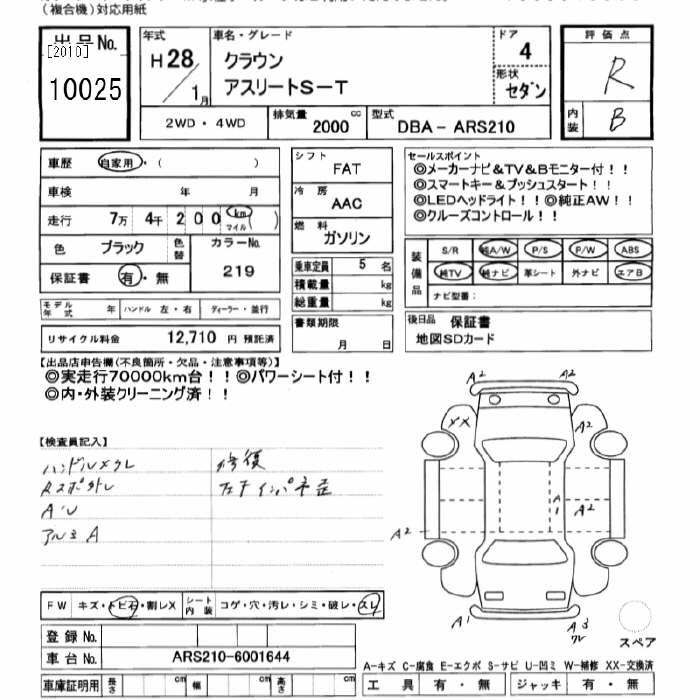 （複合機）対応用紙
出品No.
[2010]
10025
年式
H28/1月
車名・グレード
クラウン
アスリートS－T
ドア
4
形状
セダン
評価点
R
内装
B
2WD・4WD
排気量
2000 cc
型式
DBA－ARS210
車歴 自家用・（ ）
車検 年 月
走行 7万 4千 200 km マイル
色 ブラック 色替
カラーNo.
219
保証書 有・無
シフト
FAT
冷房
AAC
燃料
ガソリン
乗車定員 5 名
積載量 kg
総重量 kg
セールスポイント
◎メーカーナビ＆TV＆Bモニター付！！
◎スマートキー＆プッシュスタート！！
◎LEDヘッドライト！！◎純正AW！！
◎クルーズコントロール！！
装備品
S/R 純A/W P/S P/W ABS
純TV 純ナビ 革シート 外ナビ エアB
ナビ型番：
モデル年式 年 ハンドル 左・右 ディーラー・並行
リサイクル料金 12,710 円 預託済
書類期限
月 日
後日品 保証書
地図SDカード
【出品店申告欄（不良箇所・欠品・注意事項等）】
◎実走行70000km台！！◎パワーシート付！！
◎内・外装クリーニング済！！
【検査員記入】
ハンドルメクレ
修復
A.U
アルミA
A2 A2
XX A2
A1 A2
A2
A1 A3
スペア
FW キズ・トビ石・割レX シート内装 コゲ・穴・汚レ・シミ・破レ・スレ
登録No.
車台No. ARS210-6001644
車庫証明用 長さ cm 幅 cm 高さ cm
A-キズ C-腐食 E-エクボ S-サビ U-凹ミ W-補修 XX-交換済
工具 有・無 ジャッキ 有・無